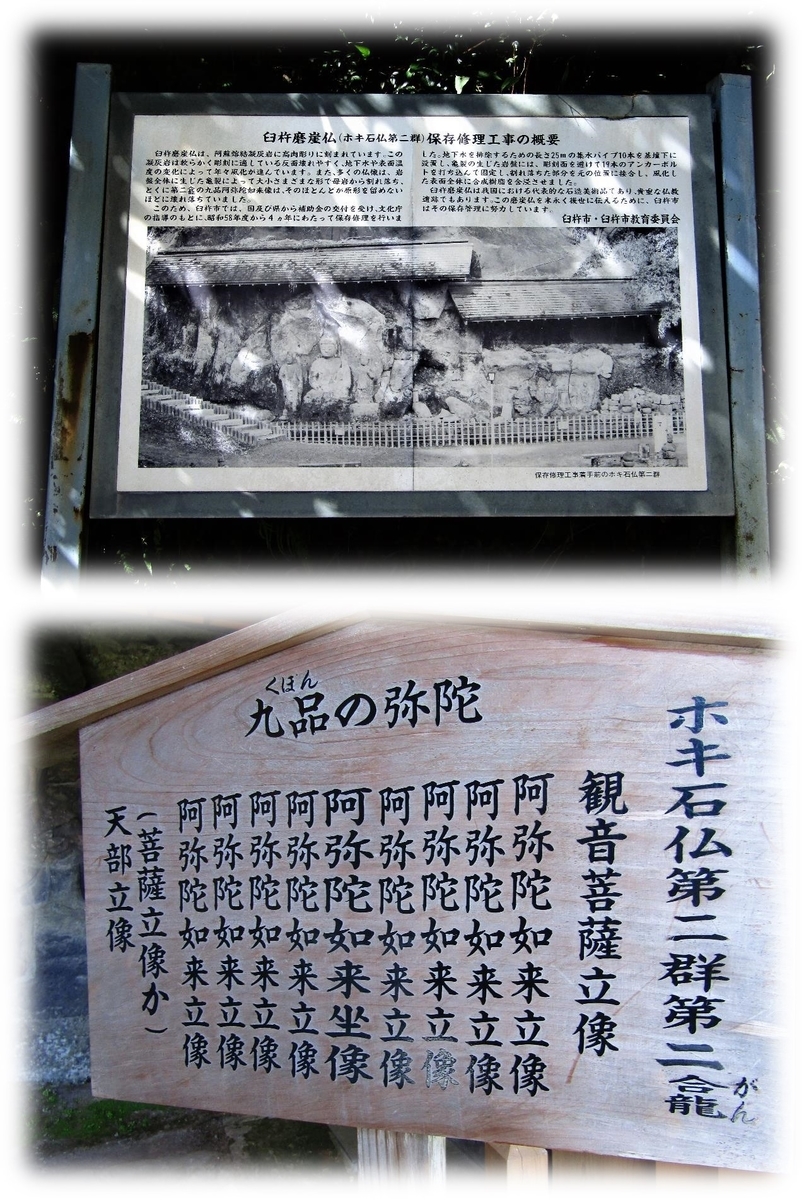 臼杵磨崖仏(ホキ石仏第二群)保存修理工事の概要
臼杵磨崖仏は、阿蘇熔結凝灰岩に高肉彫りに刻まれています。この
凝灰岩は軟らかく彫刻に適している反面壊れやすく、地下水や表面温
度の変化によって年々風化が進んでいます。また、多くの仏像は、岩
盤全体に生じた亀裂によって大小さまざまな形で母岩から割れ落ち、
とくに第二龕の九品阿弥陀如来像は、そのほとんどが原形を留めない
ほどに壊れ落ちていました。
このため、臼杵市では、国及び県から補助金の交付を受け、文化庁
の指導のもとに、昭和55年度から4ヵ年にわたって保存修理を行いま
した。地下水を排除するための長さ25mの集水パイプ10本を基壇下に
設置し、亀裂の生じた岩盤には、彫刻面を避けて19本のアンカーボル
トを打ち込んで固定し、割れ落ちた部分を元の位置に接合し、風化し
た表面全体に合成樹脂を含浸させました。
臼杵磨崖仏は我国における代表的な石造美術品であり、貴重な仏教
遺跡でもあります。この磨崖仏を末永く後世に伝えるために、臼杵市
はその保存管理に努力しています。
臼杵市・臼杵市教育委員会
保存修理工事着手前のホキ石仏第二群
ホキ石仏第二群第二龕
がん
くほん
九品の弥陀
観音菩薩立像
阿弥陀如来立像
阿弥陀如来立像
阿弥陀如来立像
阿弥陀如来立像
阿弥陀如来坐像
阿弥陀如来立像
阿弥陀如来立像
阿弥陀如来立像
阿弥陀如来立像
(菩薩立像か)
天部立像